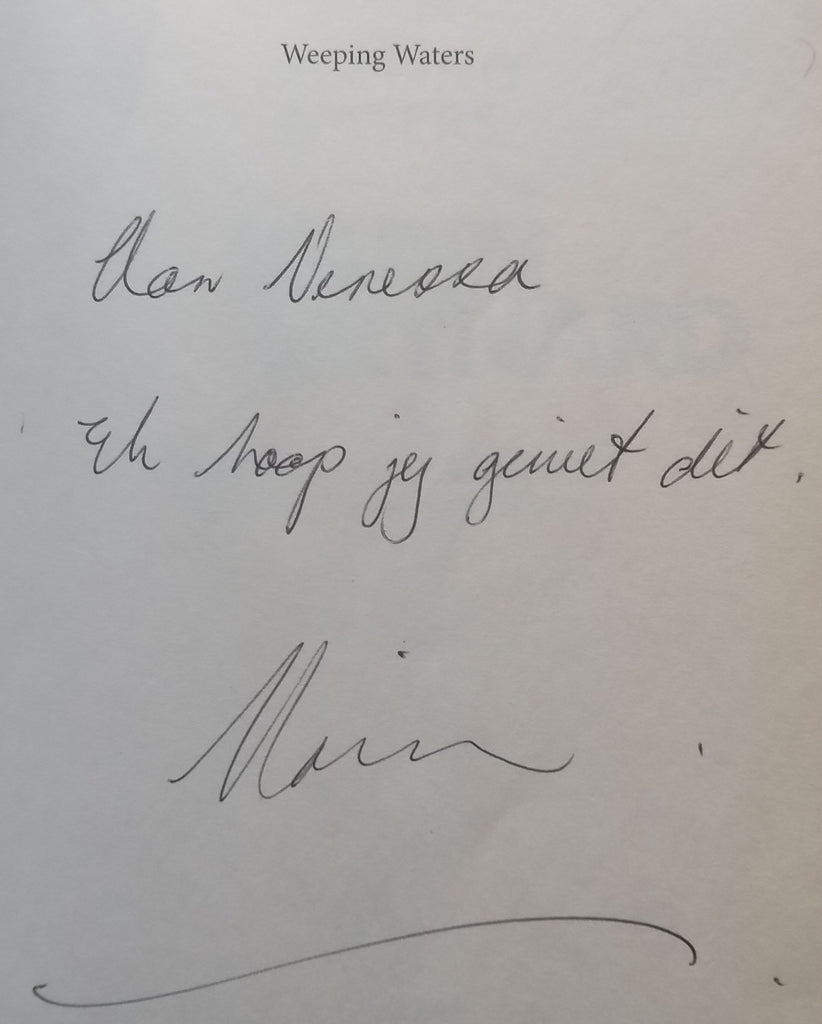 Weeping Waters
Aan Venessa
Ek hoop jy geniet dit.
Karin